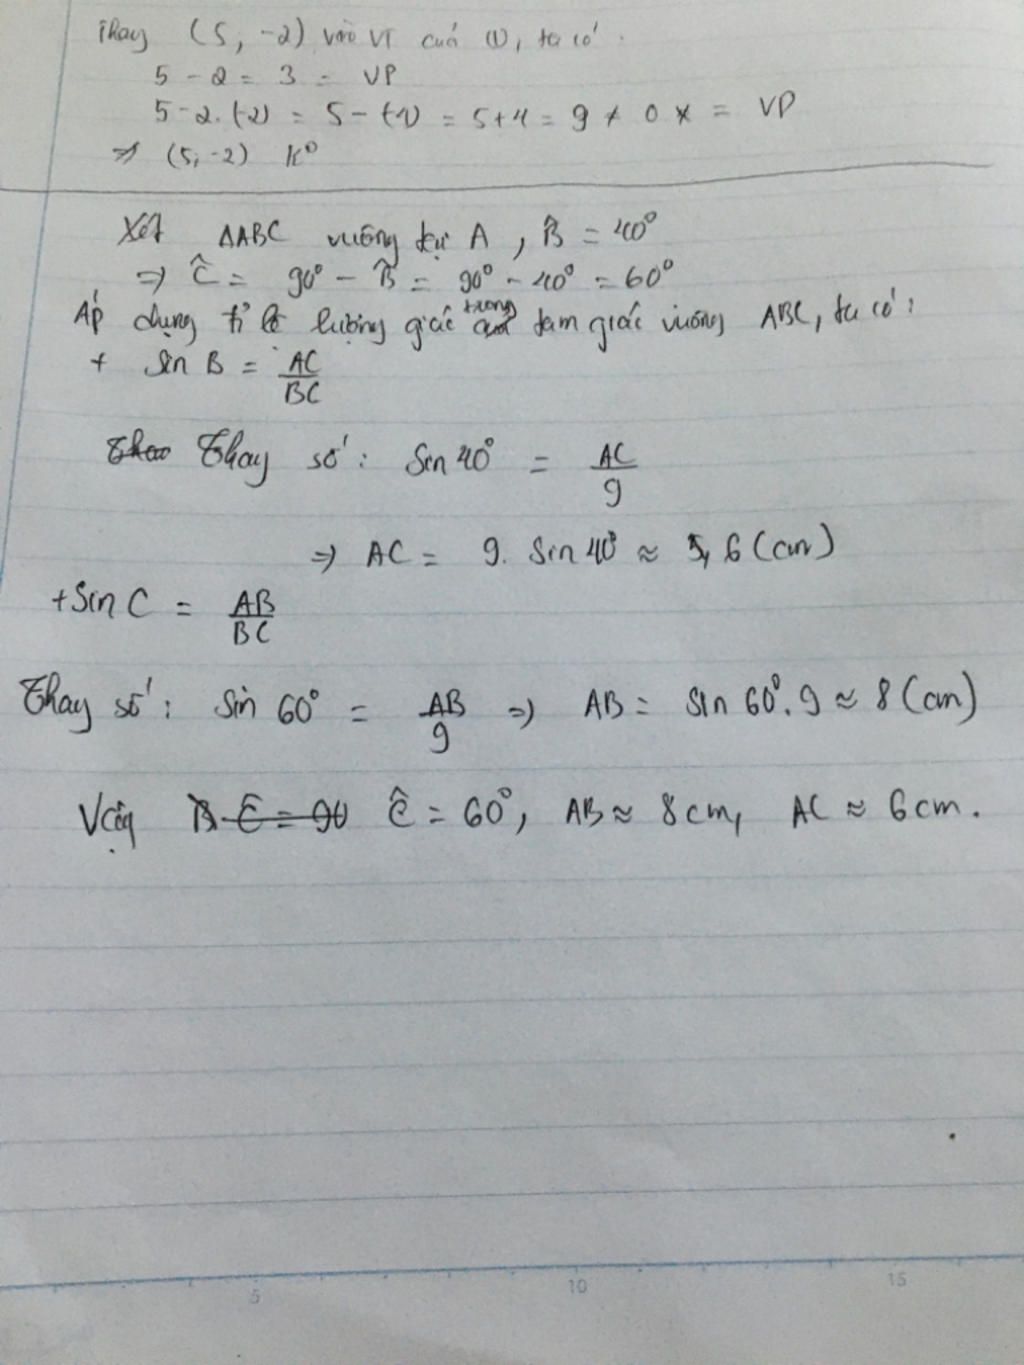 Thay (5, -2) vào VT của (1), ta có:
5 - 2 = 3 = VP
5-2.(-2) = 5-(-4) = 5+4 = 9 ≠ 0 * = VP
=> (5, -2) k°
Xét ΔABC vuông tại A, B̂ = 40°
=> Ĉ = 90° - B̂ = 90° - 40° = 60°
Áp dụng tỉ lệ lượng giác trong tam giác vuông ABC, ta có:
+ Sin B = AC/BC
Thay số: Sin 40° = AC/9
=> AC = 9. Sin 40° ≈ 5,6 (cm)
+ Sin C = AB/BC
Thay số: Sin 60° = AB/9 => AB = Sin 60°. 9 ≈ 8 (cm)
Vậy Ĉ = 60°, AB ≈ 8cm, AC ≈ 6cm.
5 10 15